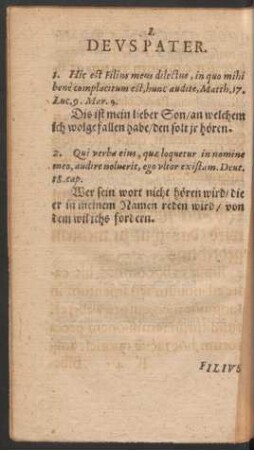 I.
DEVS PATER.
1. Hic est Filius meus dilectus, in quo mihi
bene complacitum est, hunc audite, Matth. 17.
Luc. 9. Mar. 9.
Dis ist mein lieber Son/an welchem
ich wolgefallen habe/den solt jr hören.
2. Qui verba eius, quæ loquetur in nomine
meo, audire noluerit, ego vltor existam. Deut.
18. cap.
Wer sein wort nicht hören wird/die
er in meinem Namen reden wird/von
dem wil ichs fordern.
FILIVS